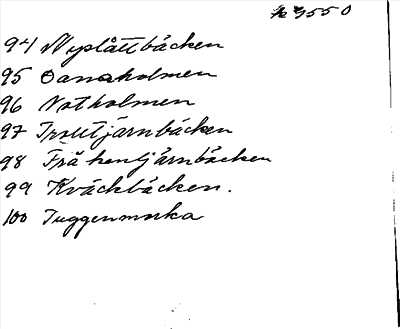 94 Nyslåttbäcken
95 Dansholmen
96 Notholmen
97 Trolltjärnbäcken
98 Fräkentjärnbäcken
99 Kväckbäcken.
100 Tuggenmorka